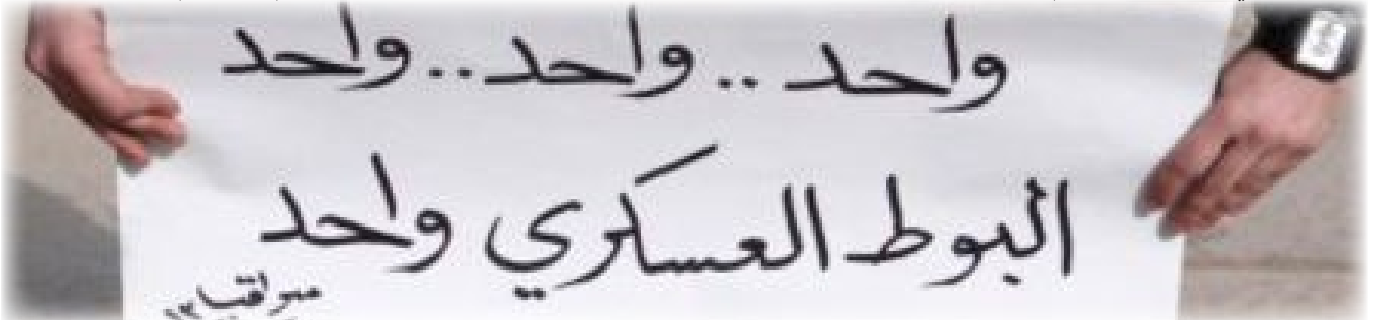 واحد .. واحد .. واحد
البوط العسكري واحد